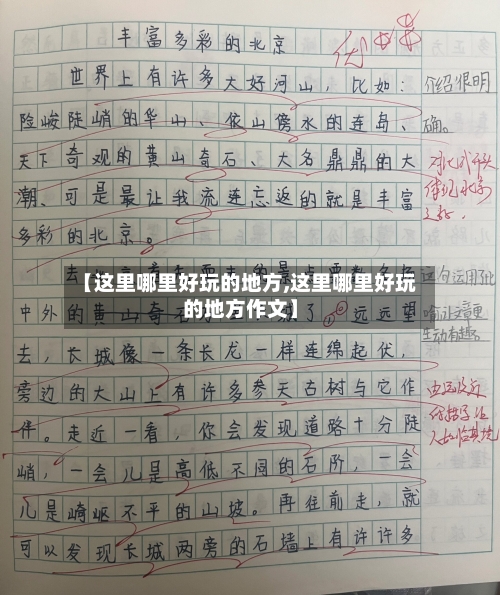 丰富多彩的北京
世界上有许多大好河山，比如：
险峻陡峭的华山、依山傍水的连岛、
天下奇观的黄山奇石、大名鼎鼎的大
潮、可是最让我流连忘返的就是丰富
多彩的北京。
【这里哪里好玩的地方,这里哪里好玩的地方作文】
中外的黄山奇石
了。远远望
去，长城像一条长龙一样连绵起伏，
旁边的大山上有许多参天古树与它作
伴。走近一看，你会发现道路十分陡
峭，一会儿是高低不同的石阶，一会
儿是崎岖不平的山坡。再往前走，就
可以发现长城两旁的石墙上有许许多
介绍很明
确。
这句运用了比
喻让文章更
生动有趣。
由远及近